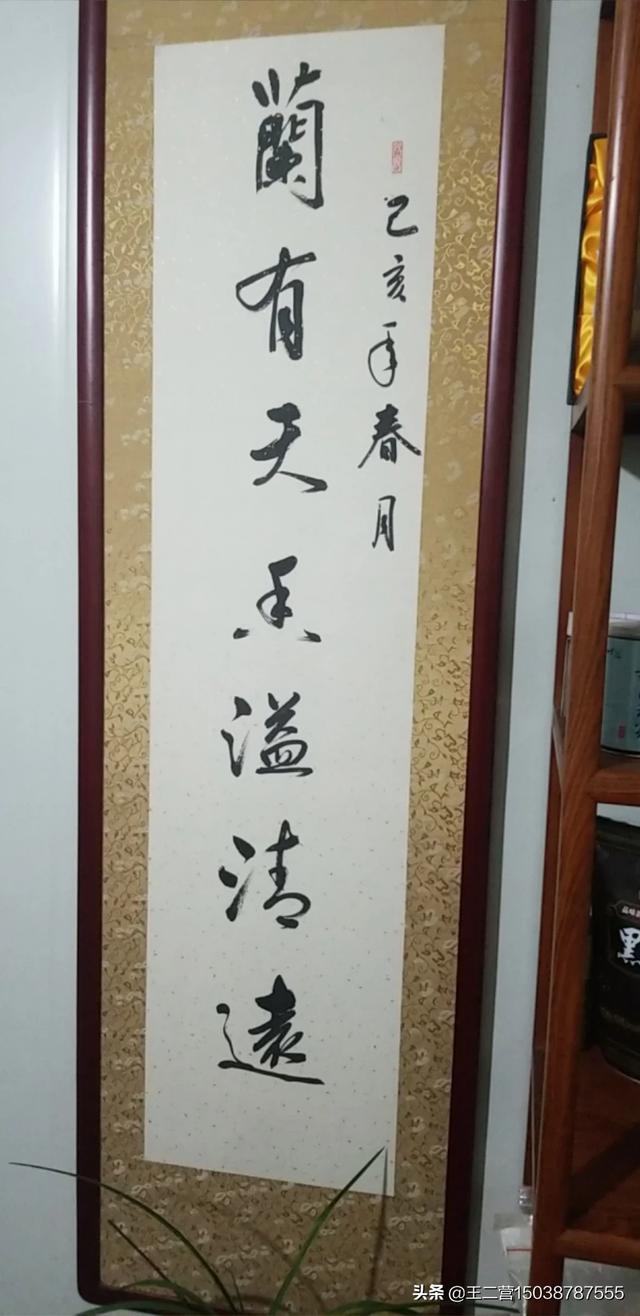 己亥年春月
蘭有天香溢清遠
黑
头条 @王二营15038787555